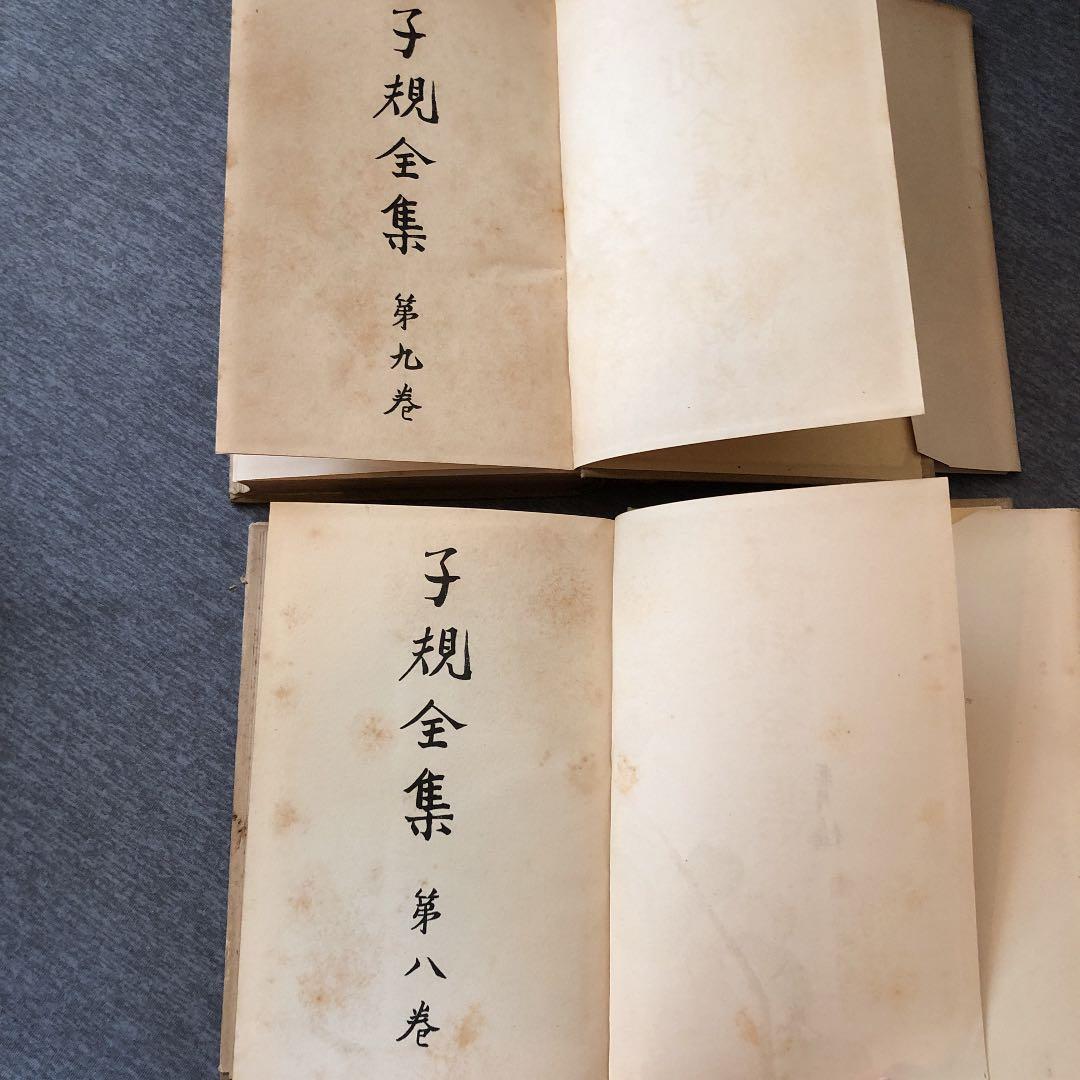 子規全集 第九卷
子規全集 第八卷